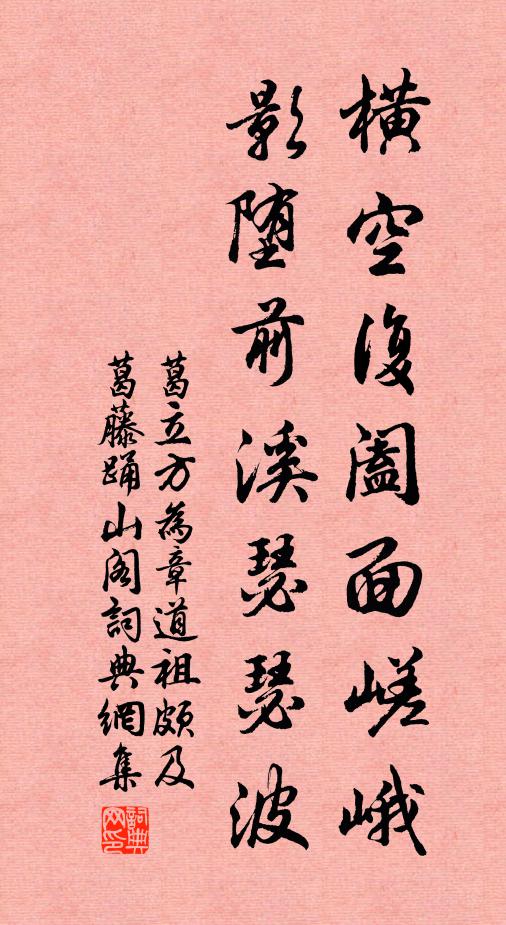 橫空復闔面嵯峨
影墮前溪瑟瑟波
葛立方為章道祖頗及
葛藤踊山閣詞典網集
詞典
网印